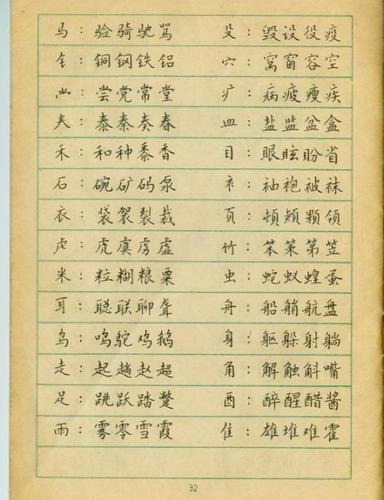 马：验骑驰骂 殳：毁设役疫
钅：铜钢铁铝 穴：窝窗容空
尝党常堂 疒：病疲瘦疾
泰秦奏春 皿：盐监盆盒
禾：和种黍香 目：眼眩盼省
石：碗矿码泵 衤：袖袍被袜
衣：袋袈裂裁 页：顷颊颗领
虍：虎虞虏虚 竹：笨策第笠
米：粒糊粮粟 虫：蛇蚁蝗蚤
耳：聪联聊耸 舟：船艄航盘
鸟：鸣鸵鸡鹅 身：躯躲射躺
走：起趟赵超 角：解触斛嘴
足：跳跃踏蹩 酉：醉醒醋酱
雨：雾零雪霞 隹：雄堆难霍
32